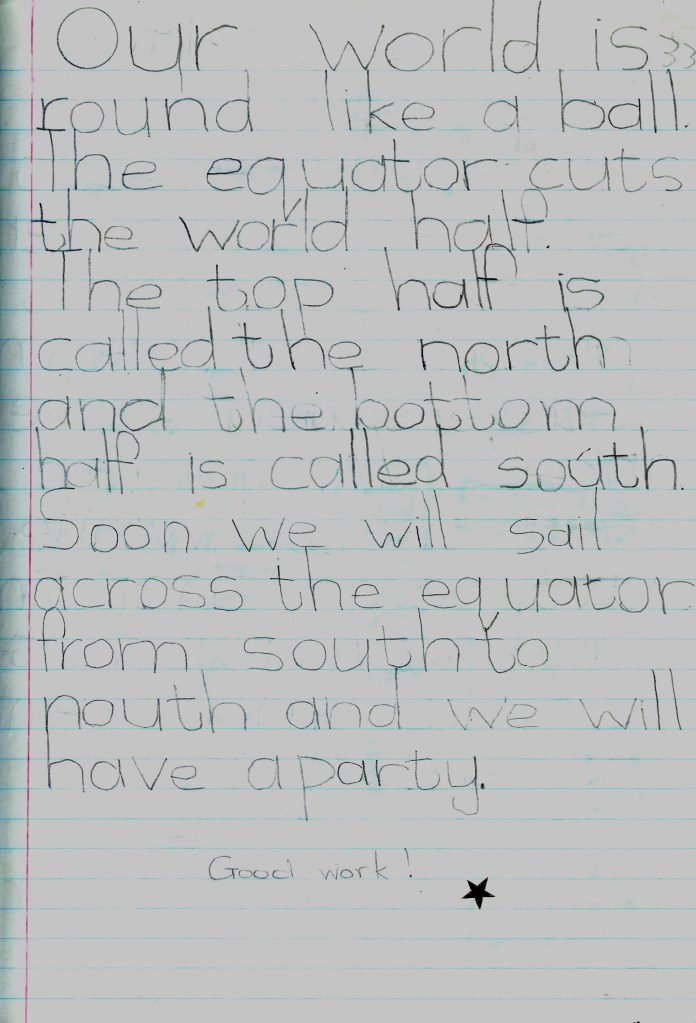 Our world is
round like a ball.
The equator cuts
the world half.
The top half is
called the north
and the bottom
half is called south.
Soon we will sail
across the equator
from south to
nouth and we will
have a party.
Good work!